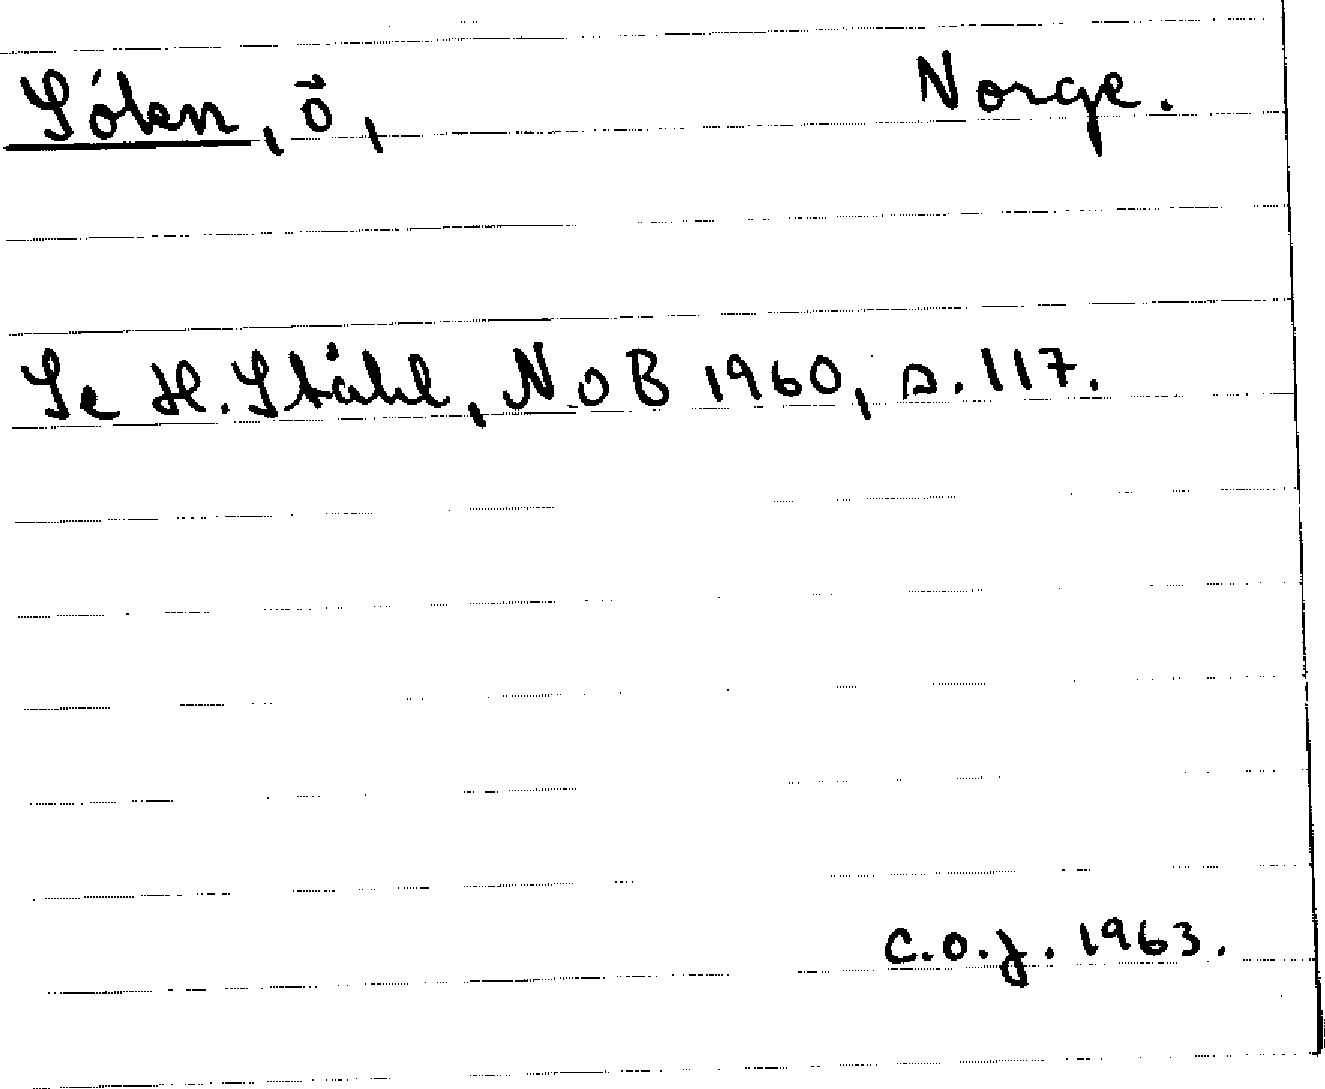 Sólen, ö, Norge.
Se H. Ståhl, NoB 1960, s. 117.
C.O.J. 1963.